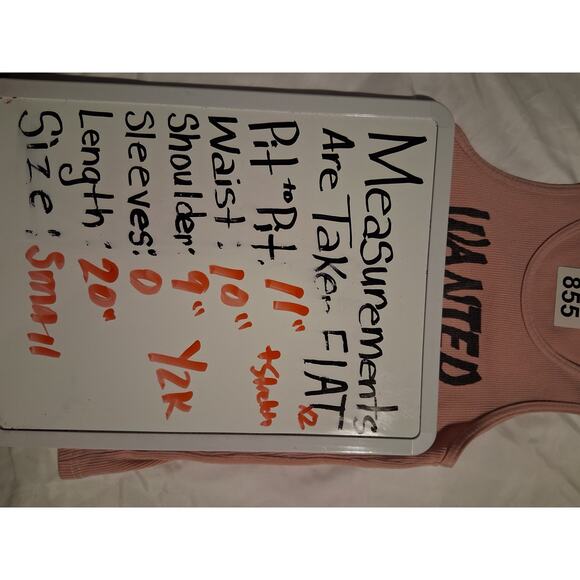 Measurements
Are Taken FlAT
x2
Pit to Pit: 11" + Stretch
Waist: 10"
Shoulder: 9" Y2K
Sleeves: 0
Length: 20"
Size: Small
WANTED
855